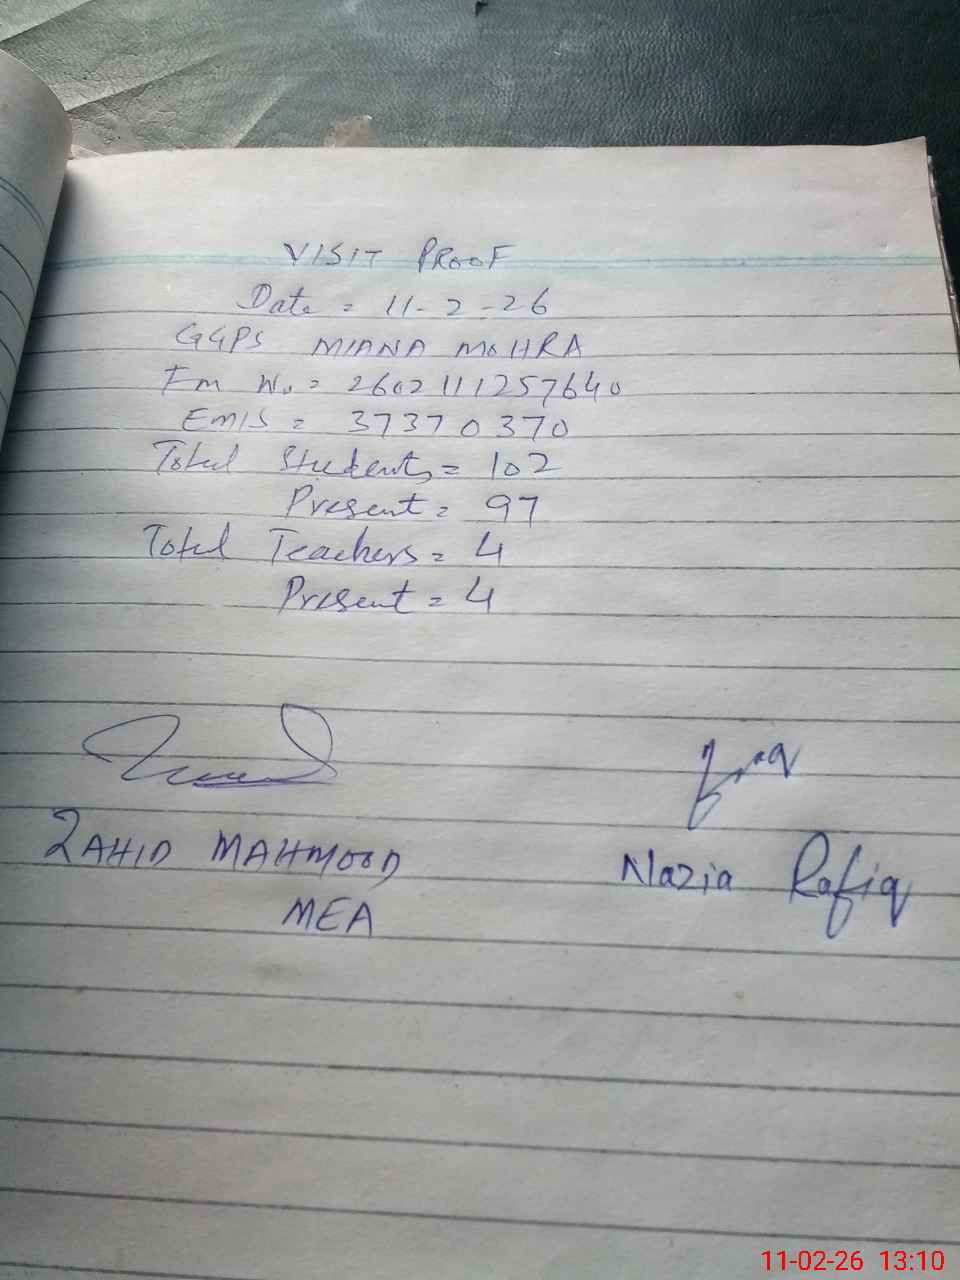 VISIT PROOF
Date = 11-2-26
GGPS MIANA MOHRA
Fm No = 2602111257640
EMIS = 37370370
Total Students = 102
Present = 97
Total Teachers = 4
Present = 4
ZAHID MAHMOOD
MEA
Nazia Rafiq
11-02-26 13:10